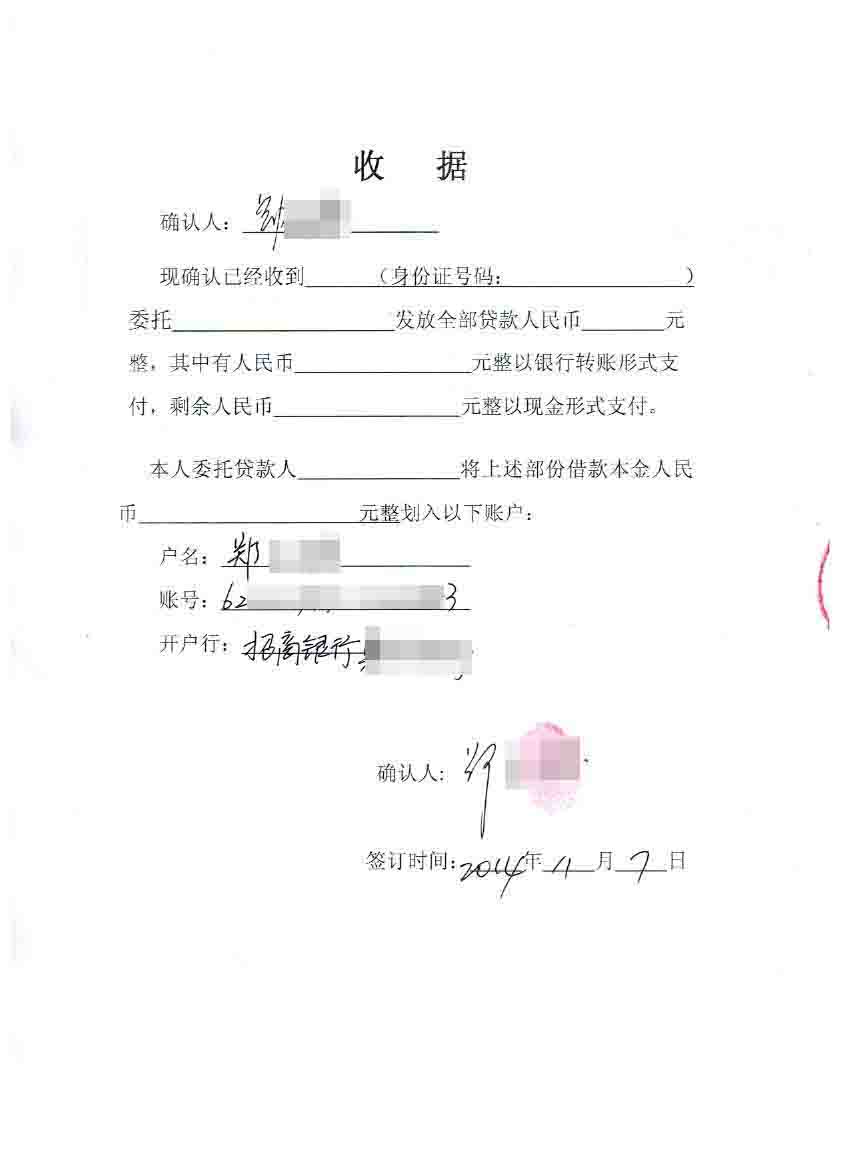 收 据
确认人：郑
现确认已经收到______（身份证号码：______）
委托______发放全部贷款人民币______元
整，其中有人民币______元整以银行转账形式支
付，剩余人民币______元整以现金形式支付。
本人委托贷款人______将上述部份借款本金人民
币______元整划入以下账户：
户名：郑
账号：62 3
开户行：招商银行
确认人：郑
签订时间：2014年11月7日